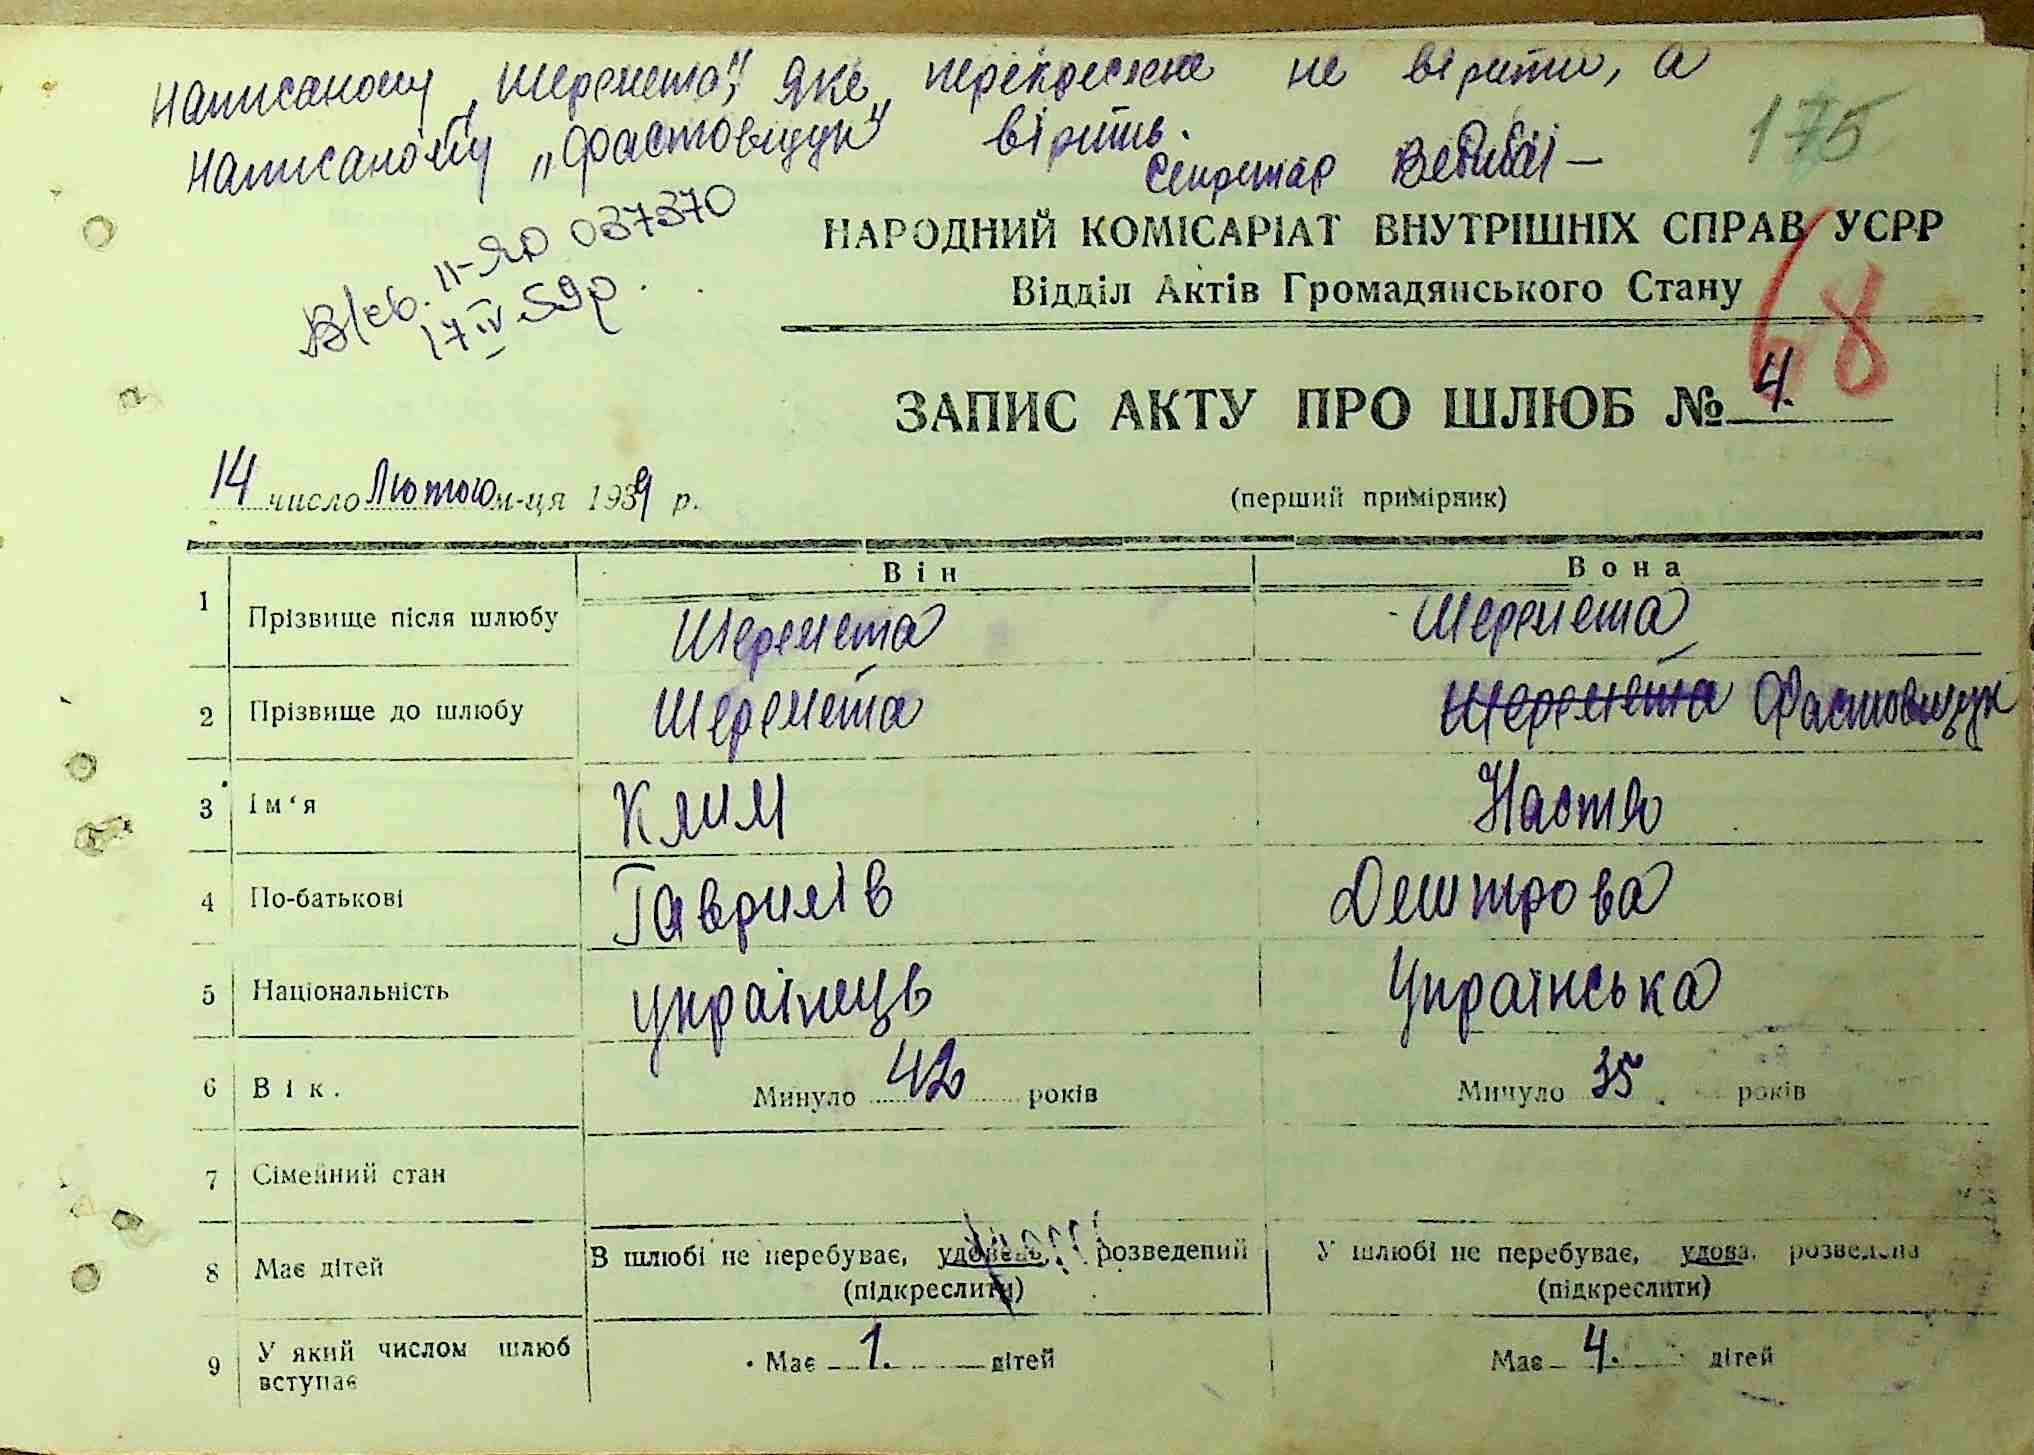 Написаному „Шеремета", яке перекреслене не вірити, а
Написаному „Фастовщук" вірить.
Секретар
175
В/св. II-ЯР 037370
17 IV 59р.
НАРОДНИЙ КОМІСАРІАТ ВНУТРІШНІХ СПРАВ УСРР
Відділ Актів Громадянського Стану
68
ЗАПИС АКТУ ПРО ШЛЮБ № 4.
14 число Лютого м-ця 1939 р.
(перший примірник)
Він Вона
1 Прізвище після шлюбу Шеремета Шеремета
2 Прізвище до шлюбу Шеремета Шеремета Фастовщук
3 Ім‘я Клим Настя
4 По-батькові Гаврилів Дмитрова
5 Національність українець Українська
6 Вік. Минуло 42 років Минуло 35 років
7 Сімейний стан
8 Має дітей В шлюбі не перебуває, удовець, розведений У шлюбі не перебуває, удова, розведена
(підкреслити) (підкреслити)
9 У який числом шлюб вступає Має 1. дітей Має 4. дітей